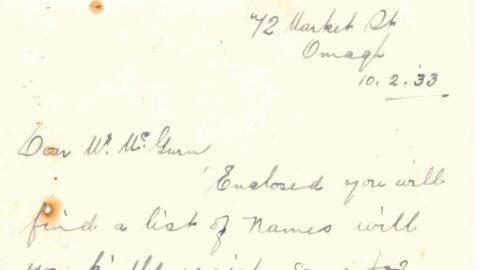 72 Market St
Omagh
10.2.33
Dear Mr. McGurn
Enclosed you will
find a list of names will
you kindly